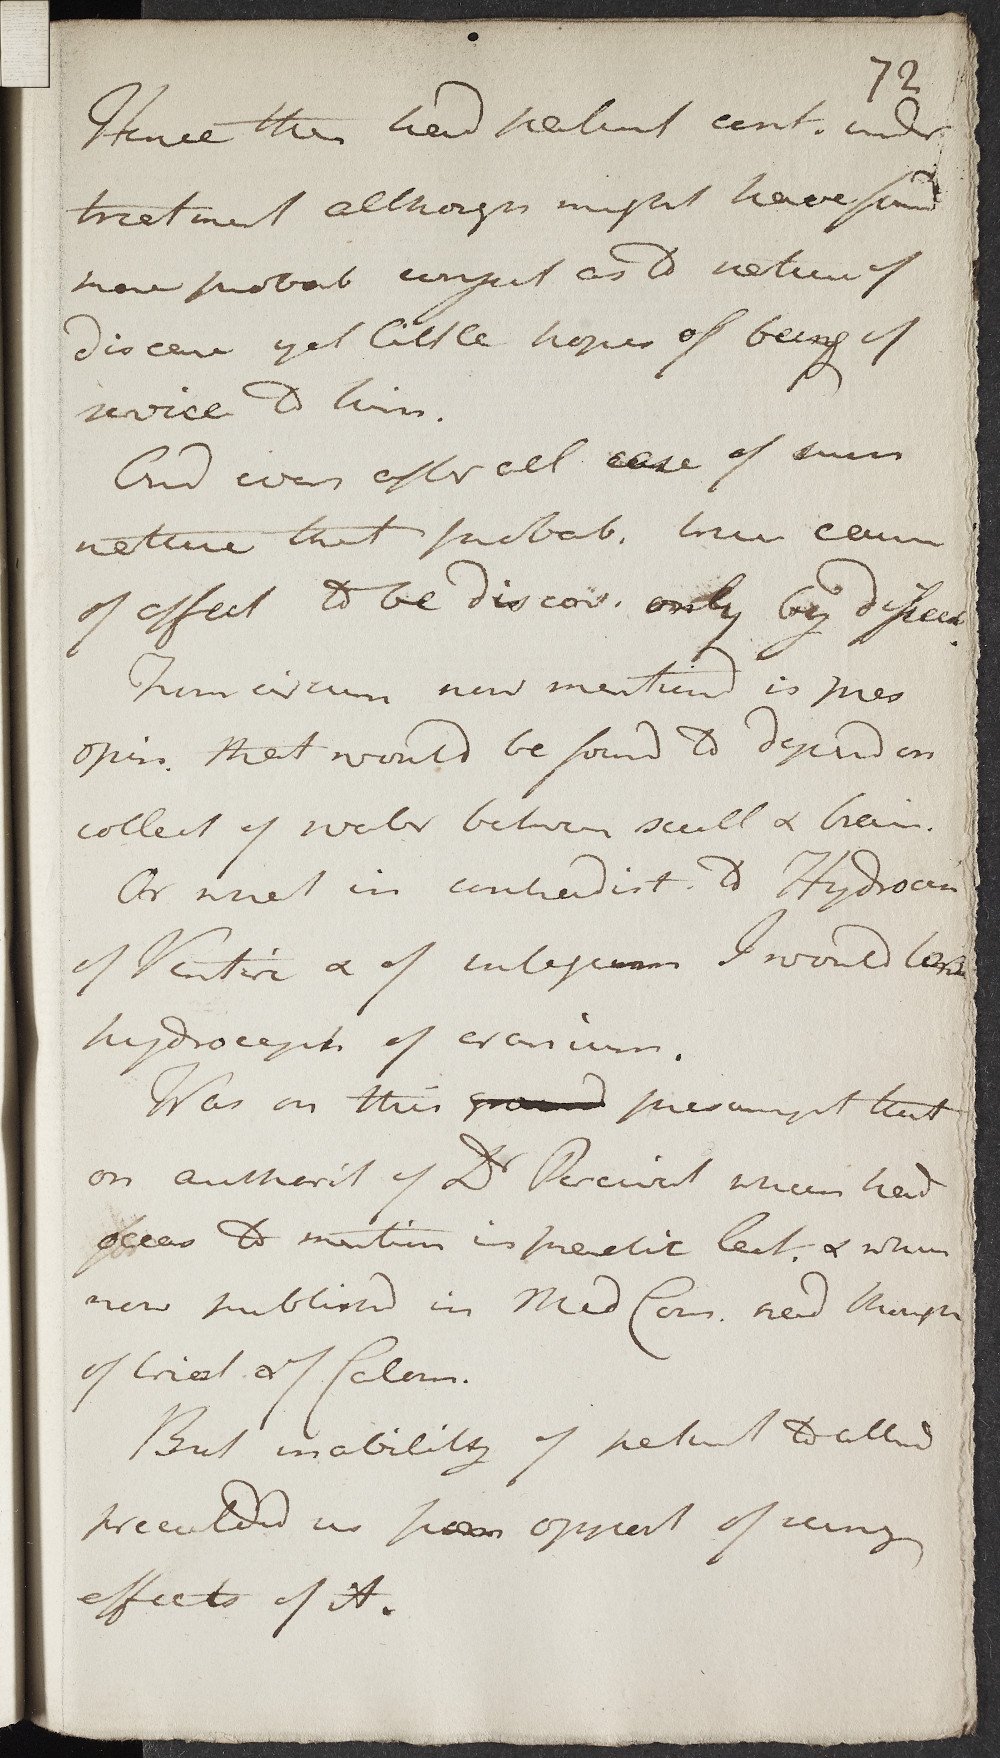 72
Hence then had patient cont. under
treatment although might have found
more probab conject as to nature of
disease yet little hopes of being of
service to him.
And even after all case of such
nature that probab. true cause
of affect to be discov. only by dissect.
From circum now mentiond is my
opin. that would be found to depend on
collect of water between scull & brain.
Or what in contradist. to Hydroceph
of Ventric & of integum I would term
hydroceph of cranium.
Was on this presumpt that
on authorit of Dr Percival whom had
occas to mention in practic lect. & whose
now publishd in Med Com. had though
of trial of Calom.
But inability of patient to attend
precluded us from opport of seeing
effects of it.